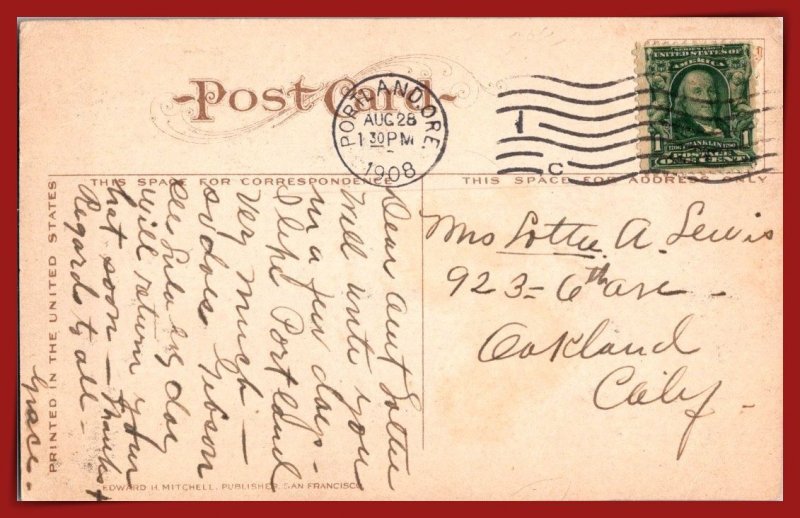 Post Card
PORTLAND, ORE.
AUG 28
1 30 PM
1908
1
C
SERIES 1902
UNITED STATES OF
AMERICA
1706 FRANKLIN 1790
1 POSTAGE 1
ONE CENT
THIS SPACE FOR CORRESPONDENCE
THIS SPACE FOR ADDRESS ONLY
PRINTED IN THE UNITED STATES
Dear Aunt Lottie
Will write you
in a few days -
I like Portland
very much -
so does Gibson
See Lulu every day
will return your
hat soon - Thanks &
Regards to all -
Grace -
Mrs Lottie A. Lewis
923 - 6th ave -
Oakland
Calif -
EDWARD H. MITCHELL, PUBLISHER, SAN FRANCISCO